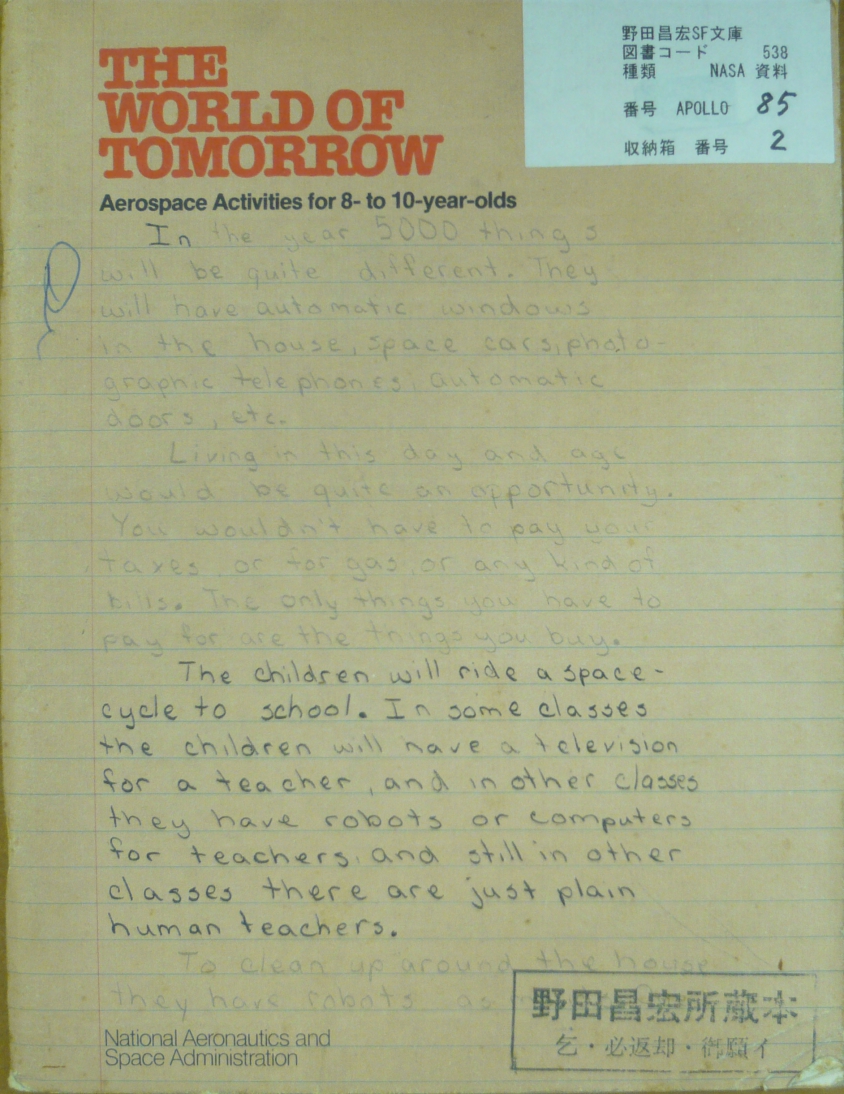 THE
WORLD OF
TOMORROW
Aerospace Activities for 8- to 10-year-olds
野田昌宏SF文庫
図書コード 538
種類 NASA 資料
番号 APOLLO 85
収納箱 番号 2
In the year 5000 things
will be quite different. They
will have automatic windows
in the house, space cars, photo-
graphic telephones, automatic
doors, etc.
Living in this day and age
would be quite an opportunity.
You wouldn't have to pay your
taxes or for gas or any kind of
bills. The only things you have to
pay for are the things you buy.
The children will ride a space-
cycle to school. In some classes
the children will have a television
for a teacher, and in other classes
they have robots or computers
for teachers, and still in other
classes there are just plain
human teachers.
To clean up around the house
they have robots as
野田昌宏所蔵本
乞・必返却・御願イ
National Aeronautics and
Space Administration